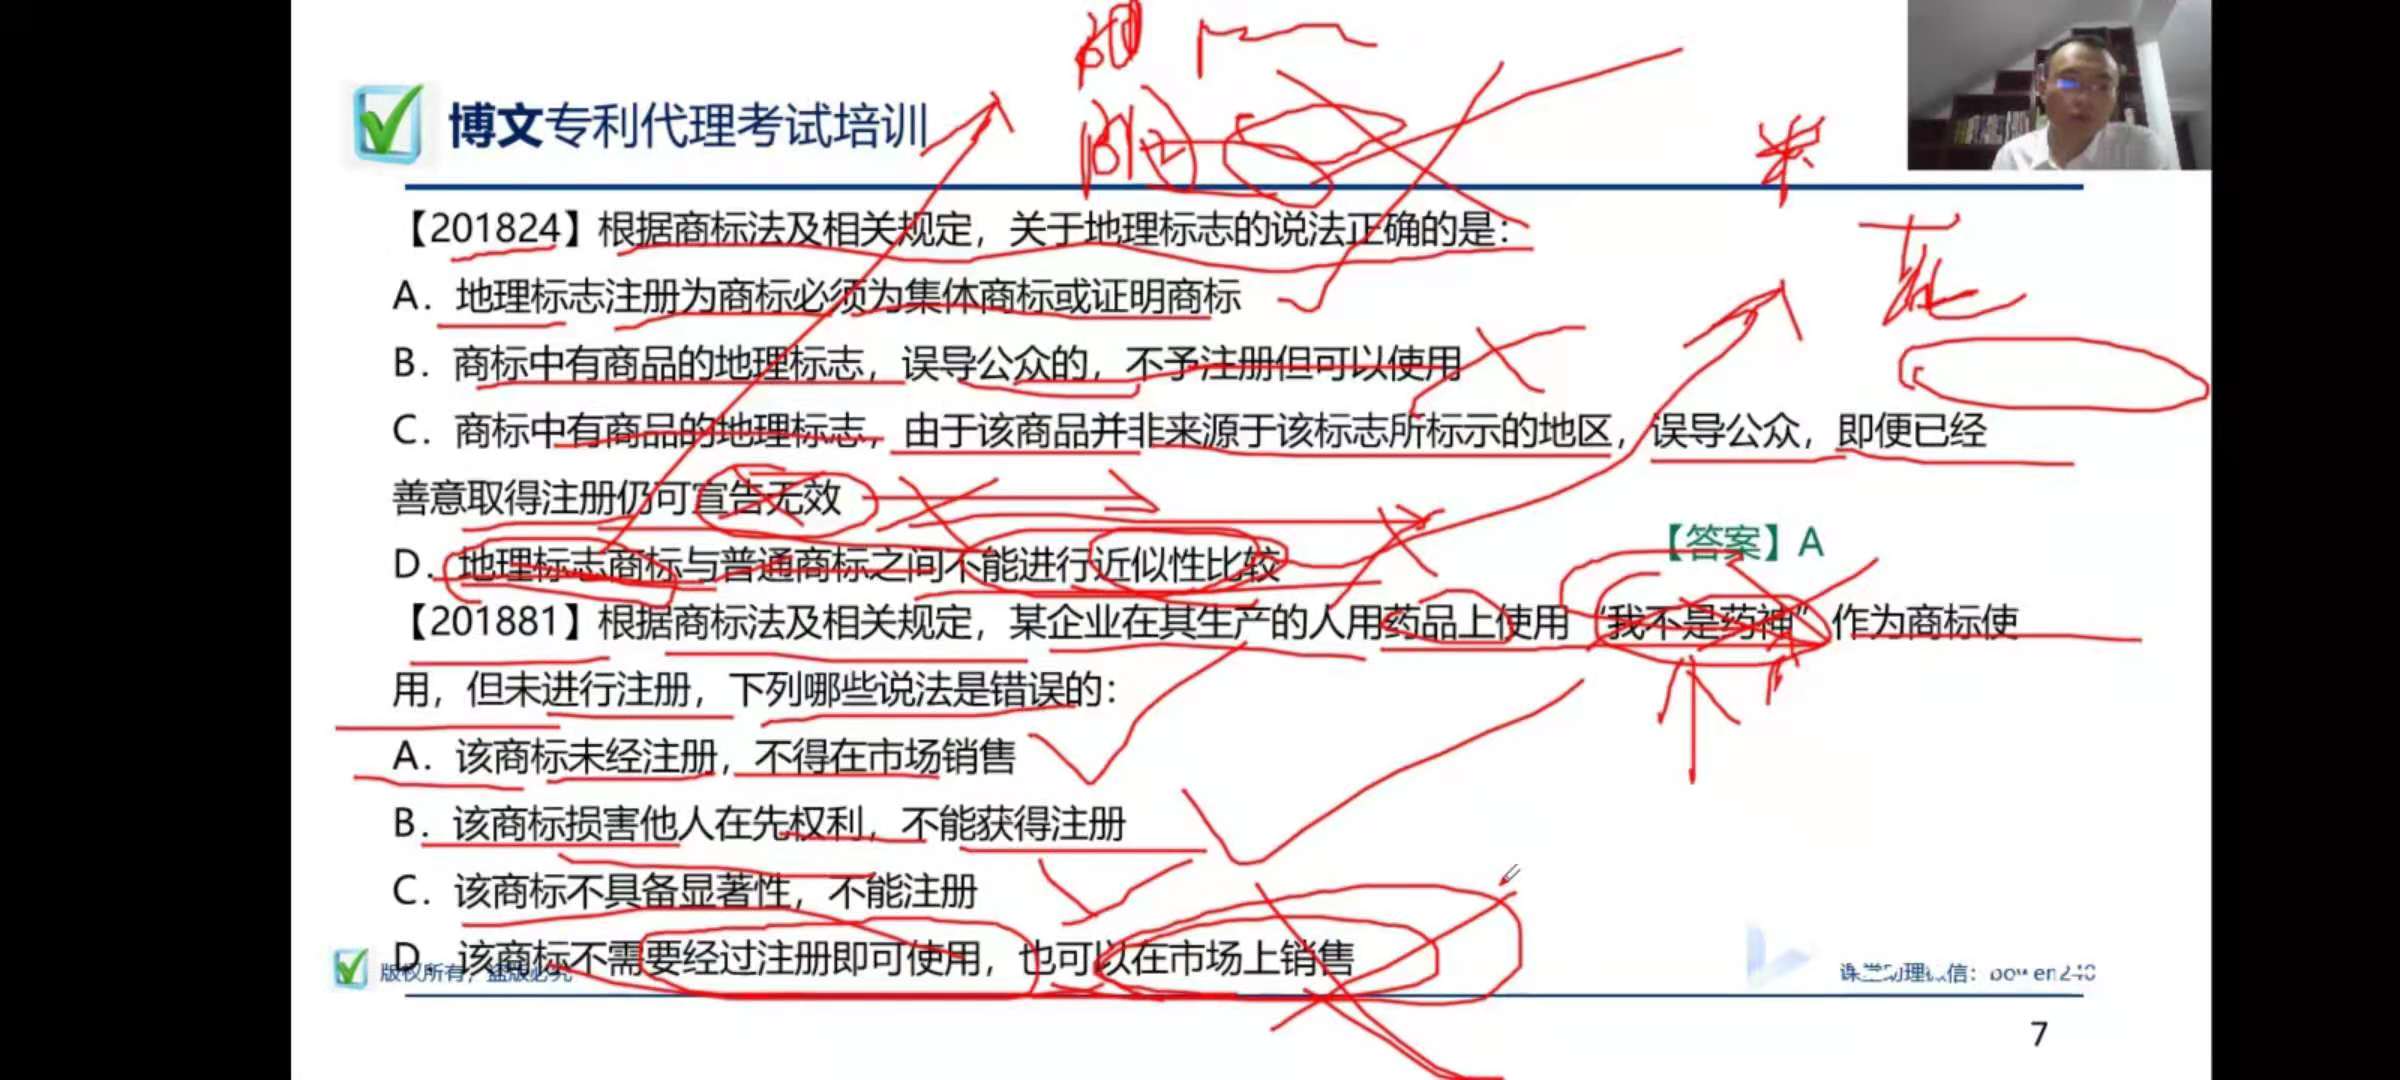 博文专利代理考试培训
【201824】根据商标法及相关规定，关于地理标志的说法正确的是：
A．地理标志注册为商标必须为集体商标或证明商标
B．商标中有商品的地理标志，误导公众的，不予注册但可以使用
C．商标中有商品的地理标志，由于该商品并非来源于该标志所标示的地区，误导公众，即便已经
善意取得注册仍可宣告无效
D．地理标志商标与普通商标之间不能进行近似性比较
【答案】A
【201881】根据商标法及相关规定，某企业在其生产的人用药品上使用“我不是药神”作为商标使
用，但未进行注册，下列哪些说法是错误的：
A．该商标未经注册，不得在市场销售
B．该商标损害他人在先权利，不能获得注册
C．该商标不具备显著性，不能注册
D．该商标不需要经过注册即可使用，也可以在市场上销售
版权所有，盗版必究
课堂助理微信：bowen240
7